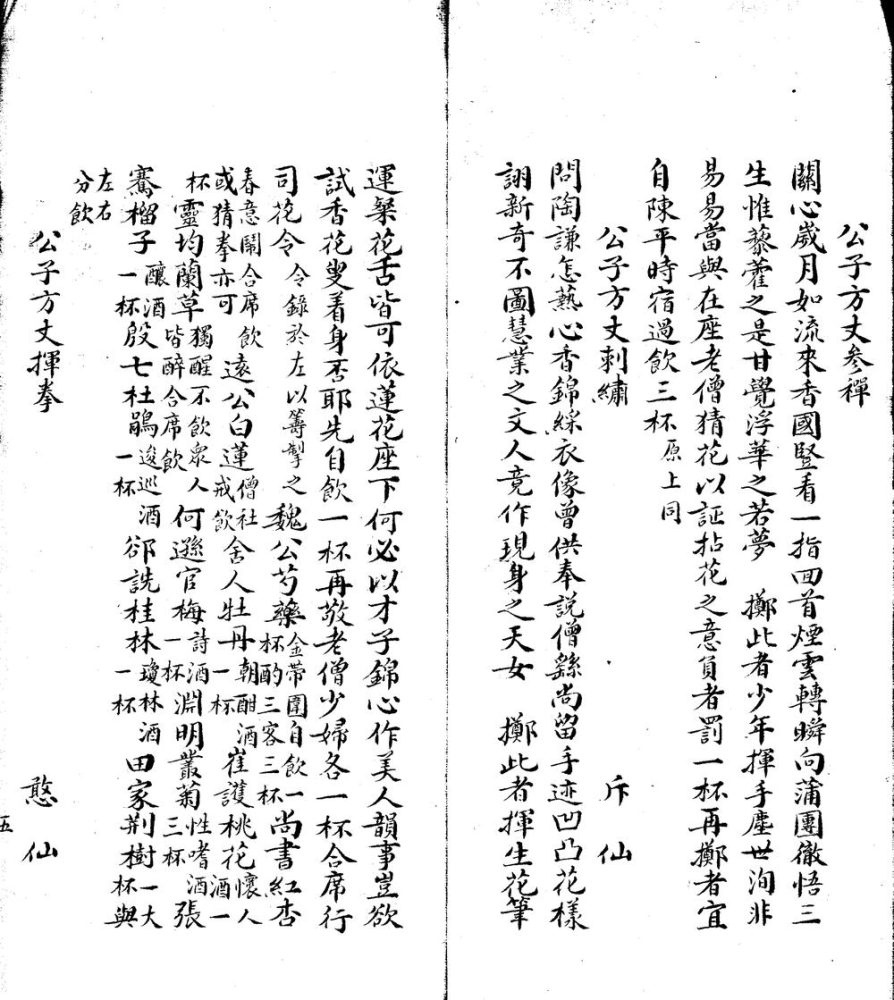 公子方丈參禪
關心歲月如流來香國豎看一指回首煙雲轉瞬向蒲團徹悟三
生惟藜藿之是甘覺浮華之若夢　擲此者少年揮手塵世洵非
易易當與在座老僧猜花以証拈花之意負者罰一杯再擲者宜
自陳平時宿過飲三杯原上同
公子方丈刺繡　斥仙
問陶謙怎熱心香錦綵衣像曾供奉説僧繇尚留手迹凹凸花樣
詡新奇不圖慧業之文人竟作現身之天女　擲此者揮生花筆
運粲花舌皆可依蓮花座下何必以才子錦心作美人韻事豈欲
試香花叟着身否耶先自飲一杯再敬老僧少婦各一杯合席行
司花令　令錄於左以籌掣之　魏公芍藥金帶圍自飲一杯酌三客三杯尚書紅杏
春意鬧合席飲或猜拳亦可　遠公白蓮僧社戒飲　舍人牡丹朝酣酒一杯　崔護桃花懷人酒一
杯　靈均蘭草獨醒不飲衆人皆醉合席飲　何遜官梅詩酒一杯　淵明叢菊性嗜酒三杯　張
騫榴子釀酒一杯　殷七杜鵑逡巡酒一杯　郤詵桂林瓊林酒一杯　田家荆樹一大杯與
左右分飲
公子方丈揮拳　憨仙
五